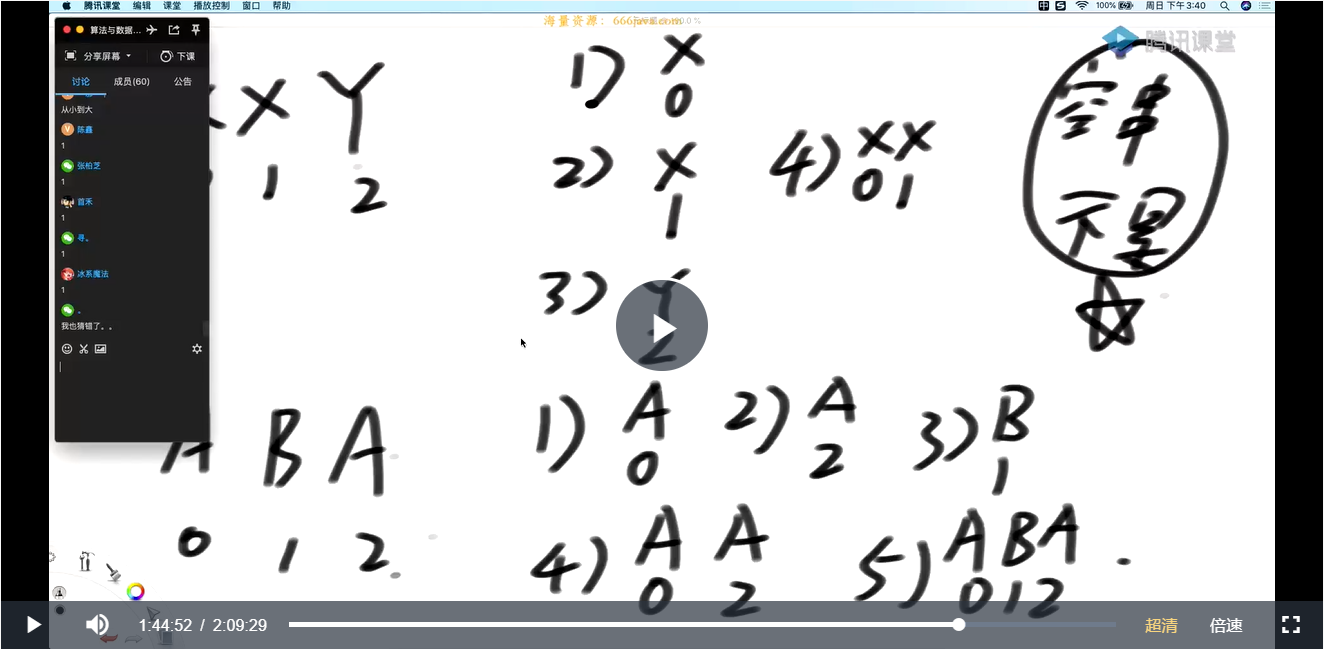 腾讯课堂 编辑 课堂 播放控制 窗口 帮助
100% 周日 下午3:40
海量资源：666java.com
腾讯课堂
算法与数据...
分享屏幕 下课
讨论 成员(60) 公告
从小到大
陈鑫
1
张柏芝
1
首禾
1
寻。
1
冰系魔法
1
。
我也猜错了。。
X Y
1 2
1) X
0
2) X
1
3) Y
2
4) XX
01
空串
不是
A B A
0 1 2
1) A
0
2) A
2
3) B
1
4) A A
0 2
5) ABA
012
1:44:52 / 2:09:29
超清 倍速